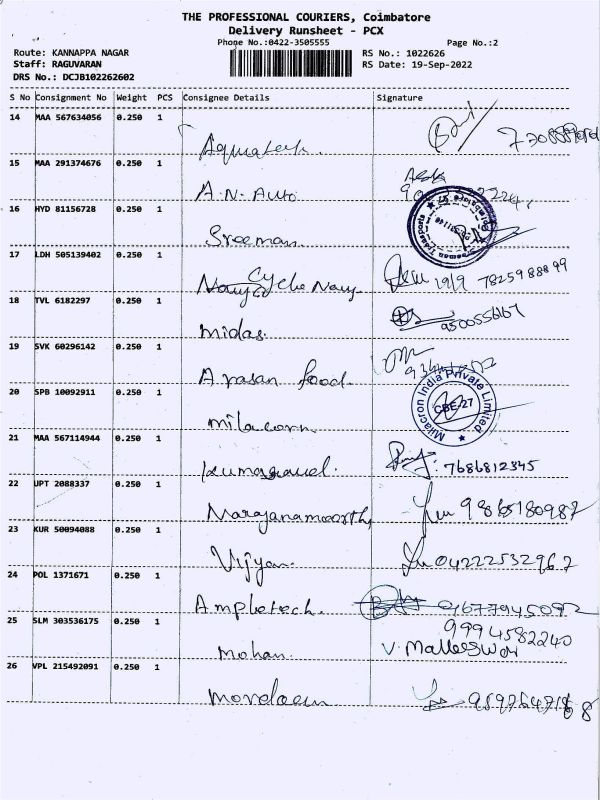 THE PROFESSIONAL COURIERS, Coimbatore
Delivery Runsheet - PCX
Phone No.:0422-3505555 Page No.:2
Route: KANNAPPA NAGAR RS No.: 1022626
Staff: RAGUVARAN RS Date: 19-Sep-2022
DRS No.: DCJB102262602
S No Consignment No Weight PCS Consignee Details Signature
14 MAA 567634056 0.250 1
Aquatech.
15 MAA 291374676 0.250 1
A.N. Auto
16 HYD 81156728 0.250 1
Sreeman
17 LDH 505139402 0.250 1
Cycle Navy 19/9 7825988899
18 TVL 6182297 0.250 1
midas. 9500556167
19 SVK 60296142 0.250 1
Arasan food.
20 SPB 10092911 0.250 1
Milacron India Private Limited
CBE-27
milacorn
21 MAA 567114944 0.250 1
Kumaravel. 7686812345
22 UPT 2088337 0.250 1
Narayanamoorthy 9865180987
23 KUR 50094088 0.250 1
Vijyan. 04222532967
24 POL 1371671 0.250 1
Ampletech.
25 SLM 303536175 0.250 1
9994582240
Mohan. V. Malleswar
26 VPL 215492091 0.250 1